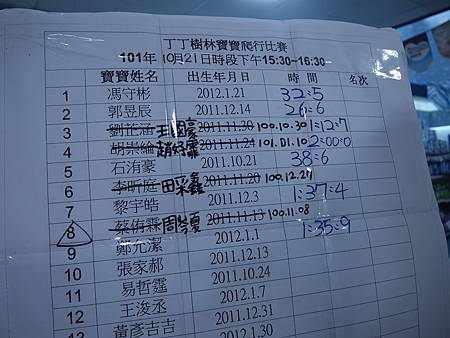 丁丁樹林寶寶爬行比賽
101年 10月21日時段下午15:30~16:30
寶寶姓名 出生年月日 時間 名次
1 馮守彬 2012.1.21 32:5
2 郭昱辰 2011.12.14 26:6
3 劉芷涵 王 豪 2011.11.30 100.10.30 1:12:7
4 胡崇綸 趙妤霏 2011.11.24 101.01.10 2:00:0
5 石洧豪 2011.10.21 38:6
6 李昕庭 田采鑫 2011.11.20 100.12.27
7 黎宇皓 2011.12.3 1:37:4
8 蔡侑霖 周 2011.11.13 100.11.08 1:35:9
9 鄭允潔 2012.1.1
10 張家郝 2011.12.13
11 易哲霆 2011.10.24
12 王浚丞 2012.1.7
13 黃彥吉吉 2011.12.31
2012.1.30